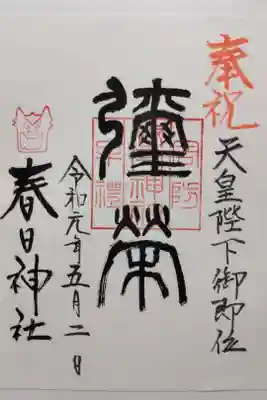 奉祝
天皇陛下御即位
彌榮
令和元年五月二日
春日神社